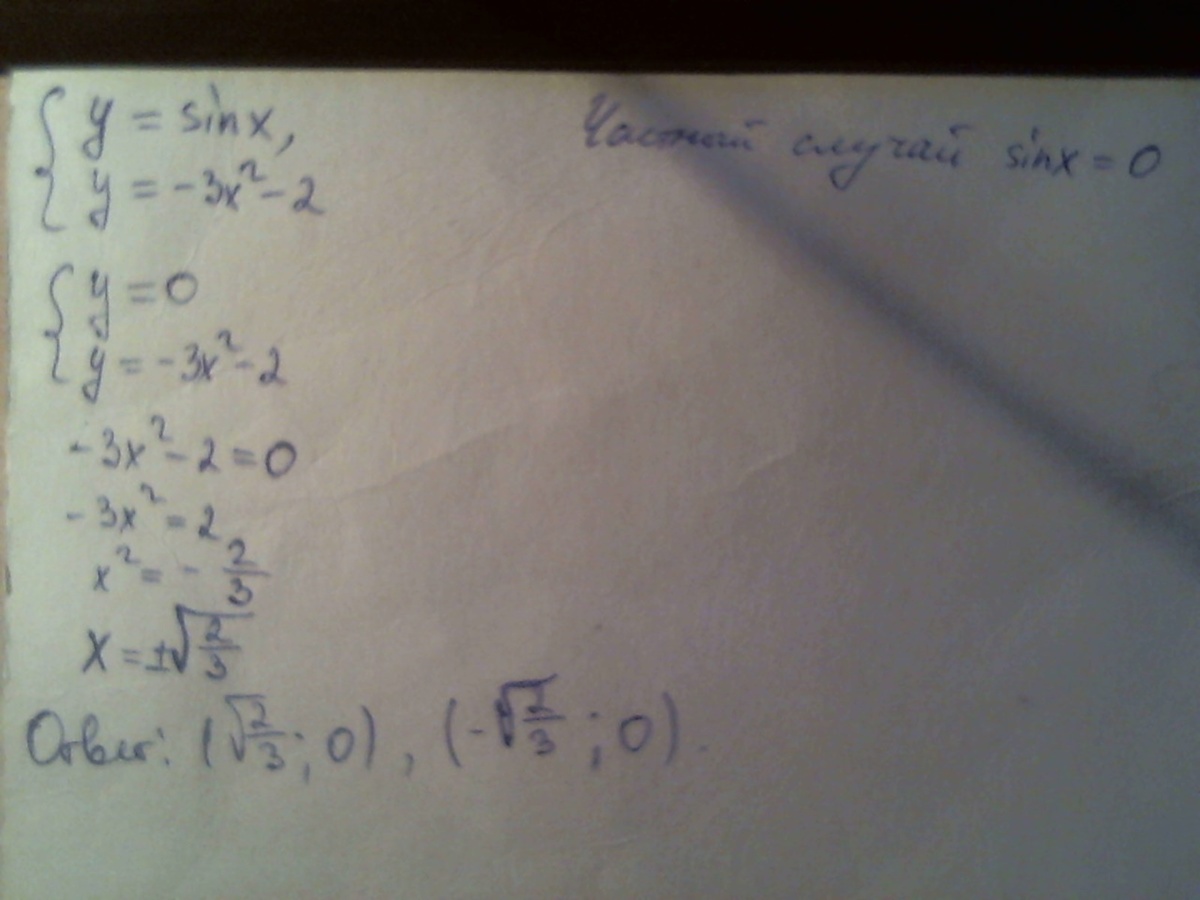 y = sinx,
y = -3x² - 2
Частный случай sinx = 0
y = 0
y = -3x² - 2
-3x² - 2 = 0
-3x² = 2
x² = - 2/3
x = ±√2/3
Ответ: (√2/3; 0), (-√2/3; 0).